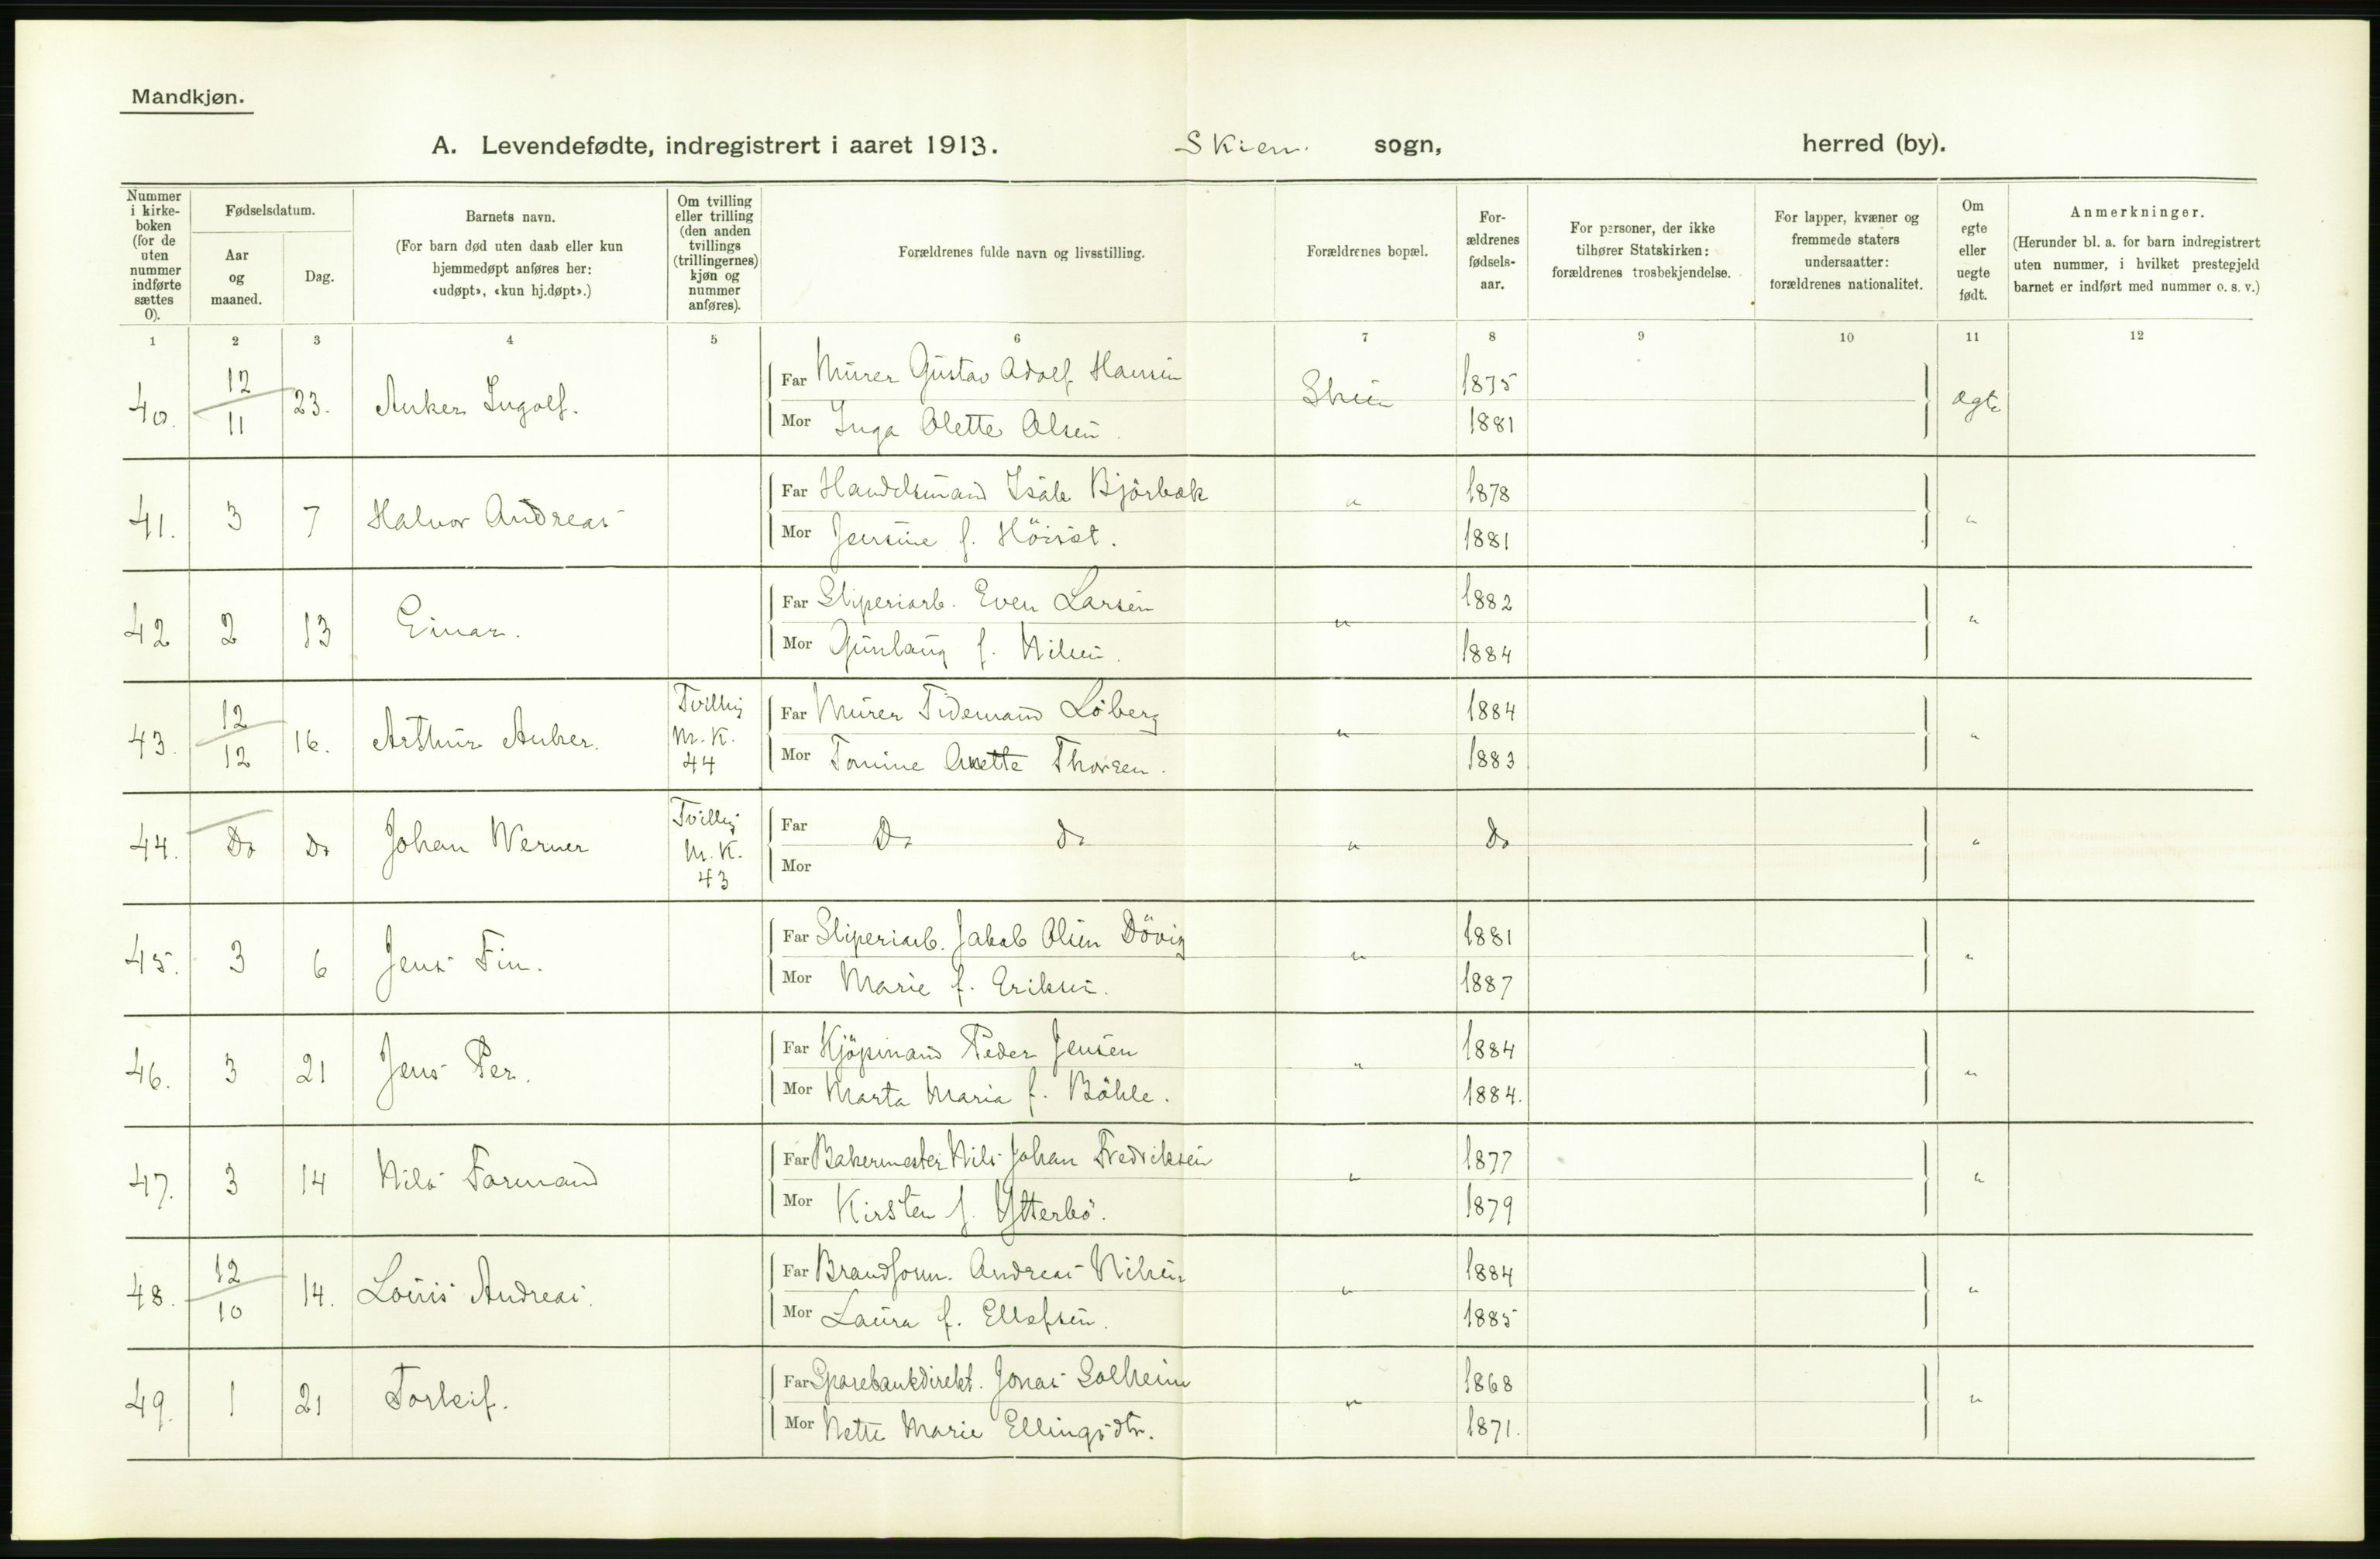 Mandkjøn.
A. Levendefødte, indregistrert i aaret 1913. Skien. sogn, herred (by).
Nummer i kirke-boken (for de uten nummer indførte sættes 0).
Fødselsdatum.
Aar og maaned.
Dag.
Barnets navn.
(For barn død uten daab eller kun hjemmedøpt anføres her: «udøpt», «kun hj.døpt».)
Om tvilling eller trilling (den anden tvillings (trillingernes) kjøn og nummer anføres).
Forældrenes fulde navn og livsstilling.
Forældrenes bopæl.
For-ældrenes fødsels-aar.
For personer, der ikke tilhører Statskirken: forældrenes trosbekjendelse.
For lapper, kvæner og fremmede staters undersaatter: forældrenes nationalitet.
Om egte eller uegte født.
Anmerkninger.
(Herunder bl. a. for barn indregistrert uten nummer, i hvilket prestegjeld barnet er indført med nummer o. s. v.)
1 2 3 4 5 6 7 8 9 10 11 12
40. 12/11 23. Anker Ingolf. Far Murer Gustav Adolf Hansen Skien 1875 ægte
Mor Inga Olette Olsen. 1881
41. 3 7 Halvor Andreas Far Handelsmand Isak Bjørbæk " 1878 "
Mor Jensine f. Höisæt. 1881
42 2 13 Einar. Far Sliperiarb. Even Larsen " 1882 "
Mor Gunlaug f. Nilsen. 1884
43. 12/12 16. Arthur Anker. Tvilling M. K. 44 Far Murer Tidemand Löberg " 1884 "
Mor Tomine Anette Thorsen. 1883
44. Do Do Johan Werner Tvilling M. K. 43 Far Do do " Do "
Mor
45. 3 6 Jens Fin. Far Sliperiarb. Jakob Olsen Dövig " 1881 "
Mor Marie f. Eriksen. 1887
46. 3 21 Jens Per. Far Kjöpmand Peder Jensen " 1884 "
Mor Marta Maria f. Böhle. 1884.
47. 3 14 Nils Farmand Far Bakermester Nils Johan Fredriksen " 1877 "
Mor Kirsten f. Ytterbö. 1879
48. 12/10 14. Louis Andreas. Far Brandform. Andreas Nilsen " 1884 "
Mor Laura f. Ellefsen. 1885
49. 1 21 Torleif. Far Sparebankdirekt. Jonas Solheim " 1868 "
Mor Nette Marie Ellingsdtr. 1871.